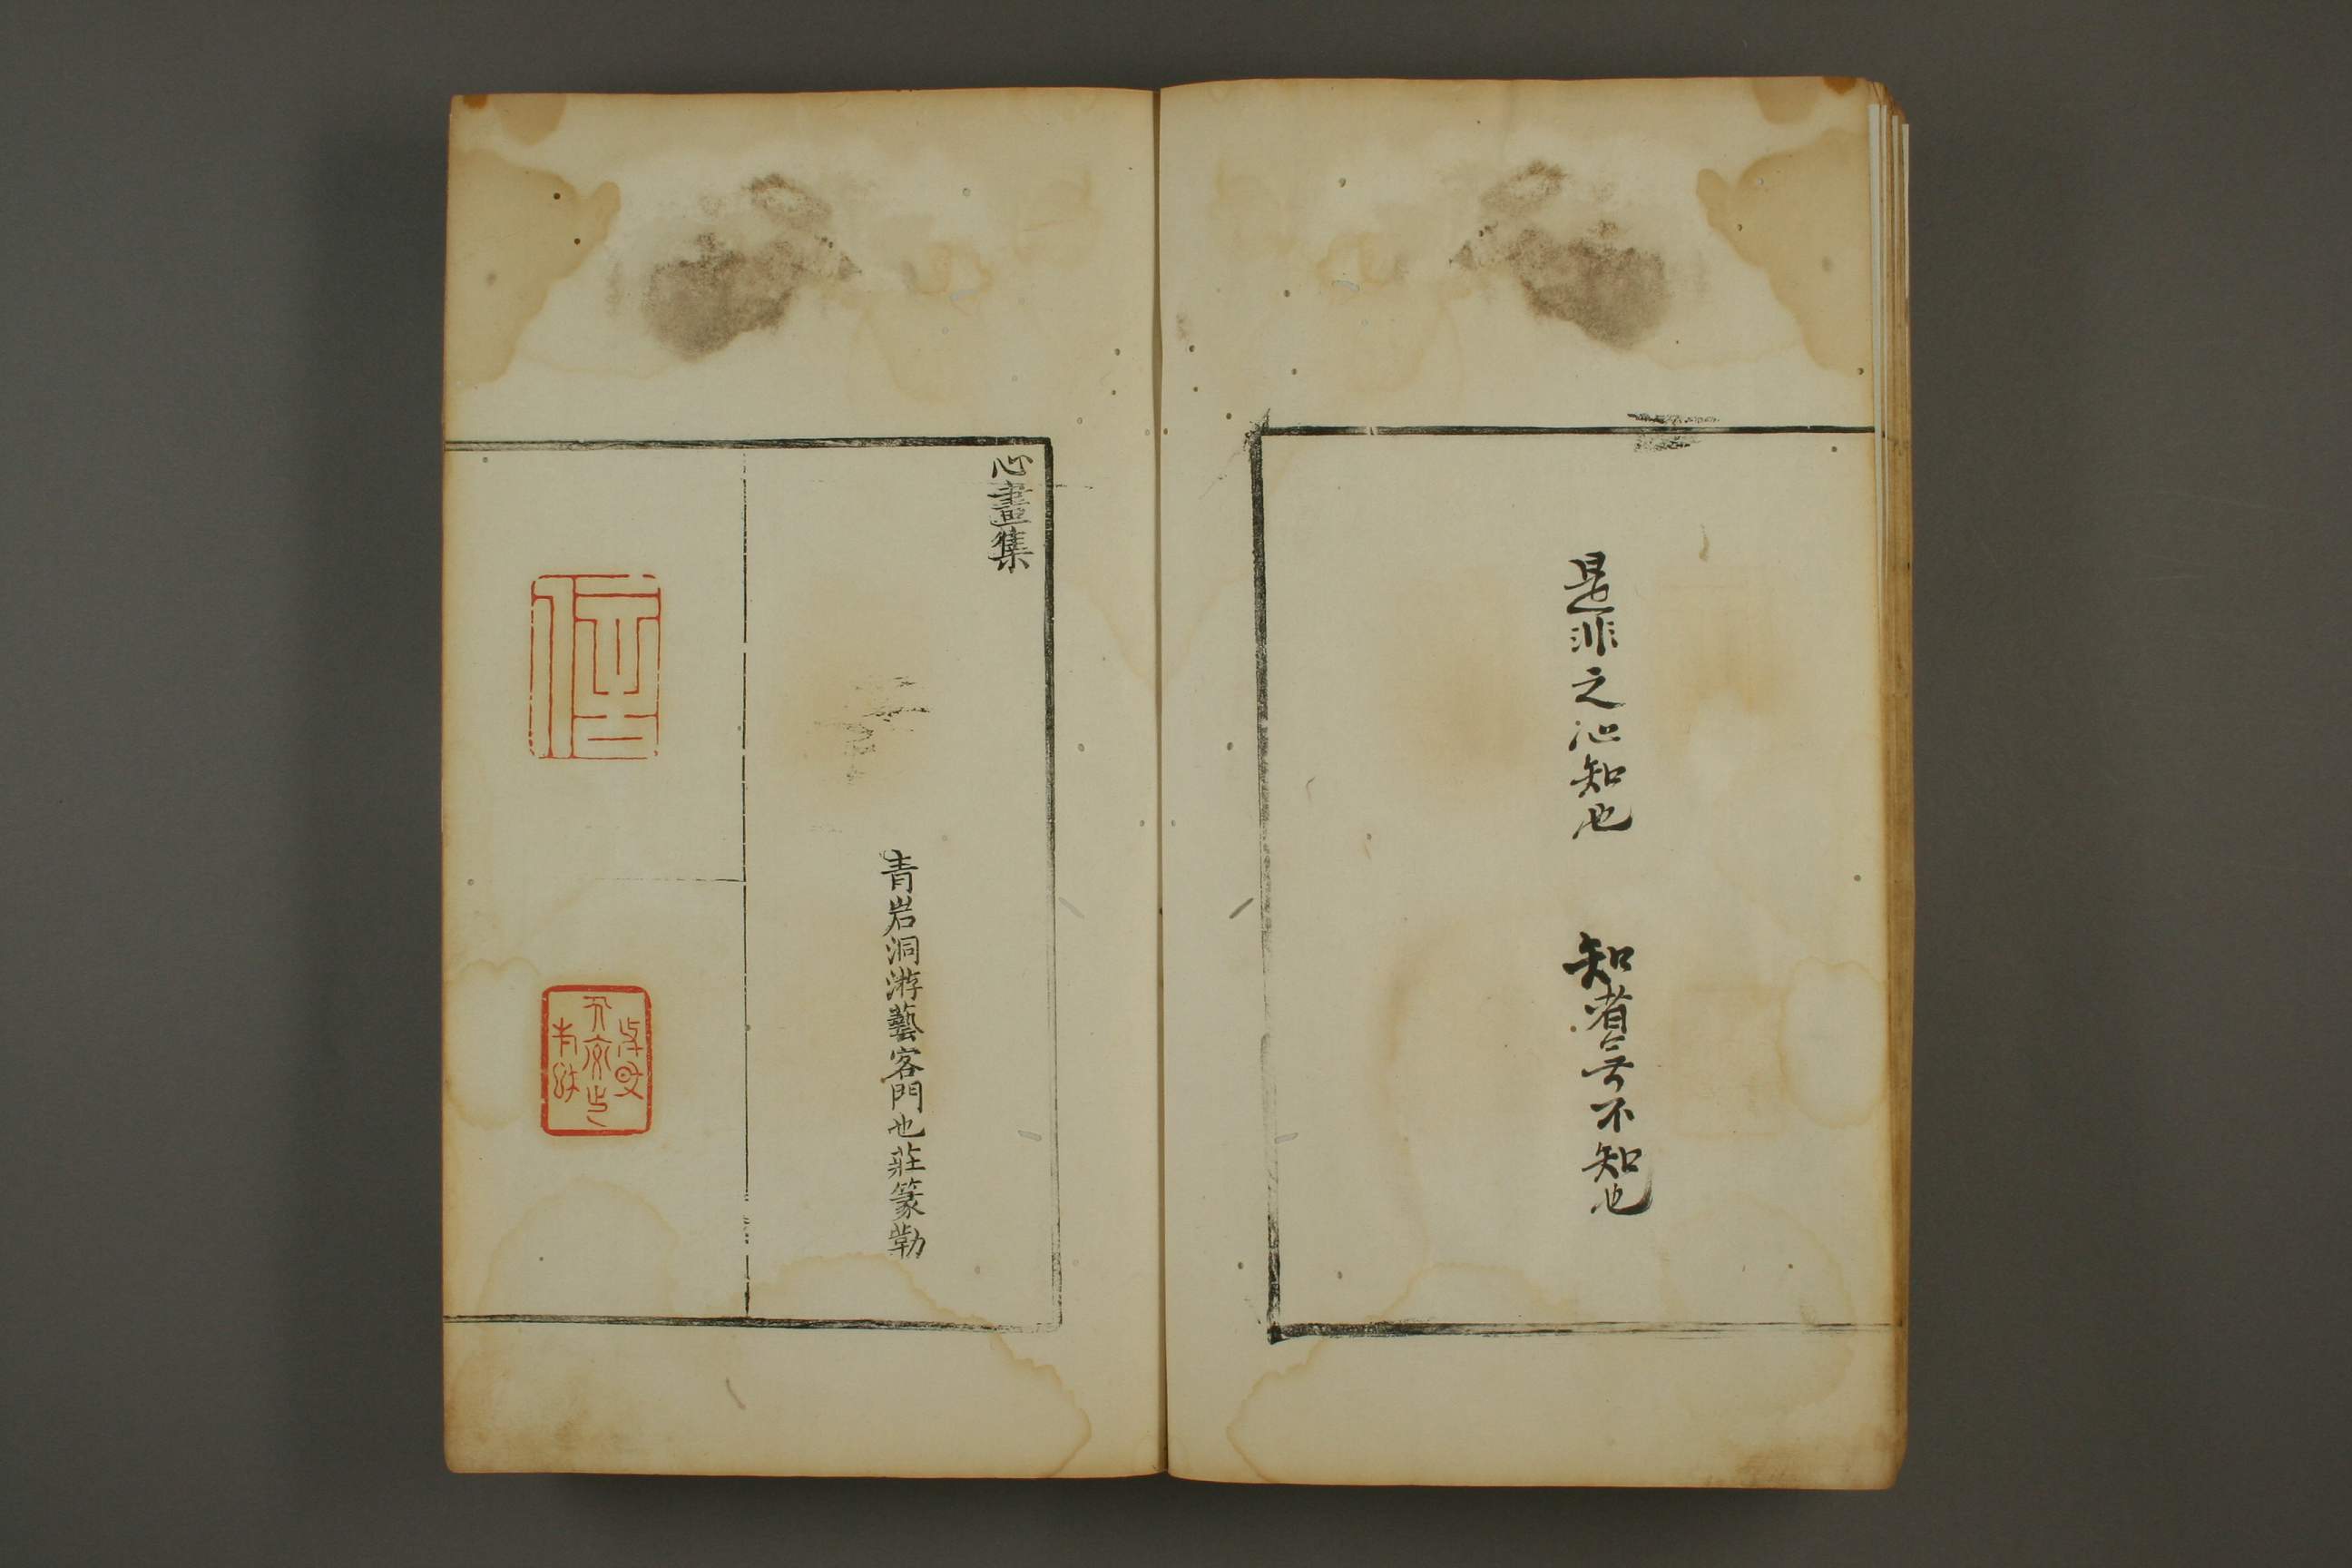 是非之心知也
知者無不知也
心畫集
青岩洞游藝客門也莊篆勒
信